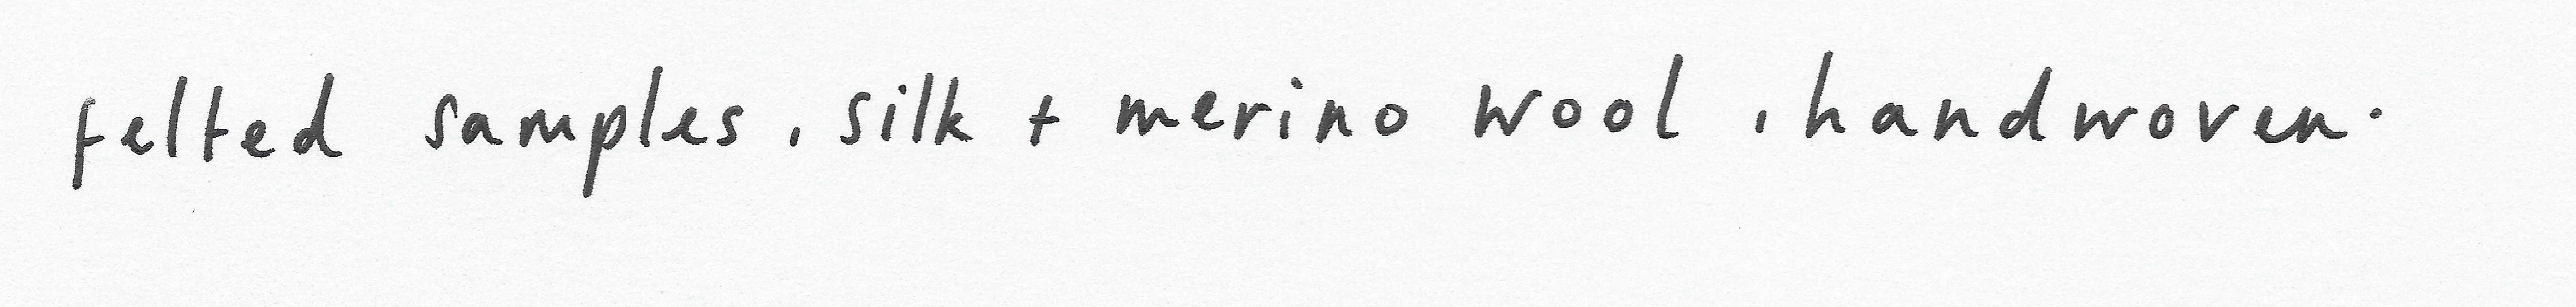 felted samples, silk + merino wool, handwoven.